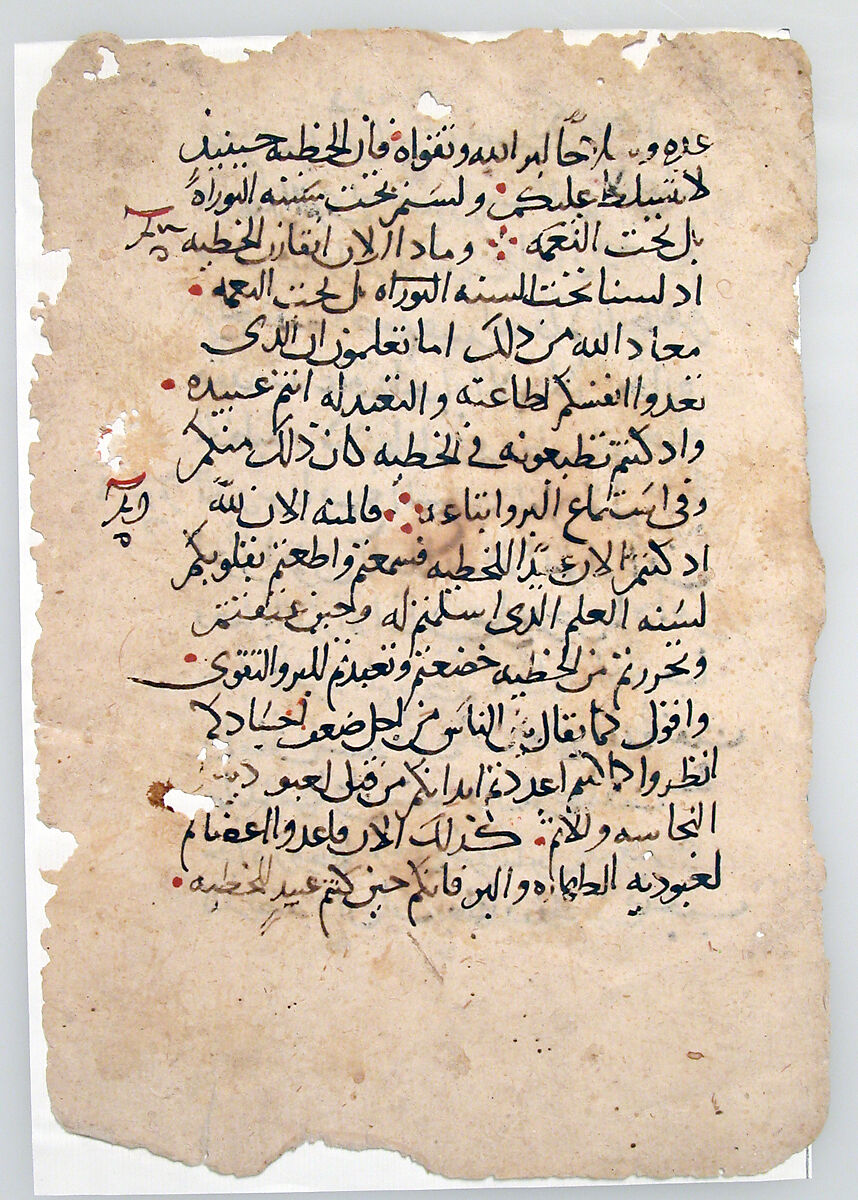 عده و سلاحا لبر الله وتقواه فان الخطيه حينيذ
لا تتسلط عليكم ولستم تحت سنه التوراه
بل تحت النعمه وماذا الان اتقازن الخطيه
اذ لسنا تحت السنه التوراه بل تحت النعمه
معاد الله من ذلك اما تعلمون ان الذى
تعدوا انفسكم لطاعته والتعبد له انتم عبيده
واذ كنتم تطيعونه في الخطيه كان ذلك منكم
وفى استماع البر واتباعه فالمنه الان لله
اذ كنتم الان عبيدًا للخطيه فسمعتم واطعتم بقلوبكم
لسنه العلم الذى اسلمتم له وحين عتقتم
وتحررتم من الخطيه خضعتم وتعبدتم للبر والتقوى
واقول كما يقال بين الناس من اجل ضعف اجسادكم
انظروا كما كنتم اعددتم ابدانكم من قبل لعبوديه
النجاسه والاثم كذلك الان فاعدوا اعضاكم
لعبوديه الطهاره والبر فانكم حين كنتم عبيد للخطيه